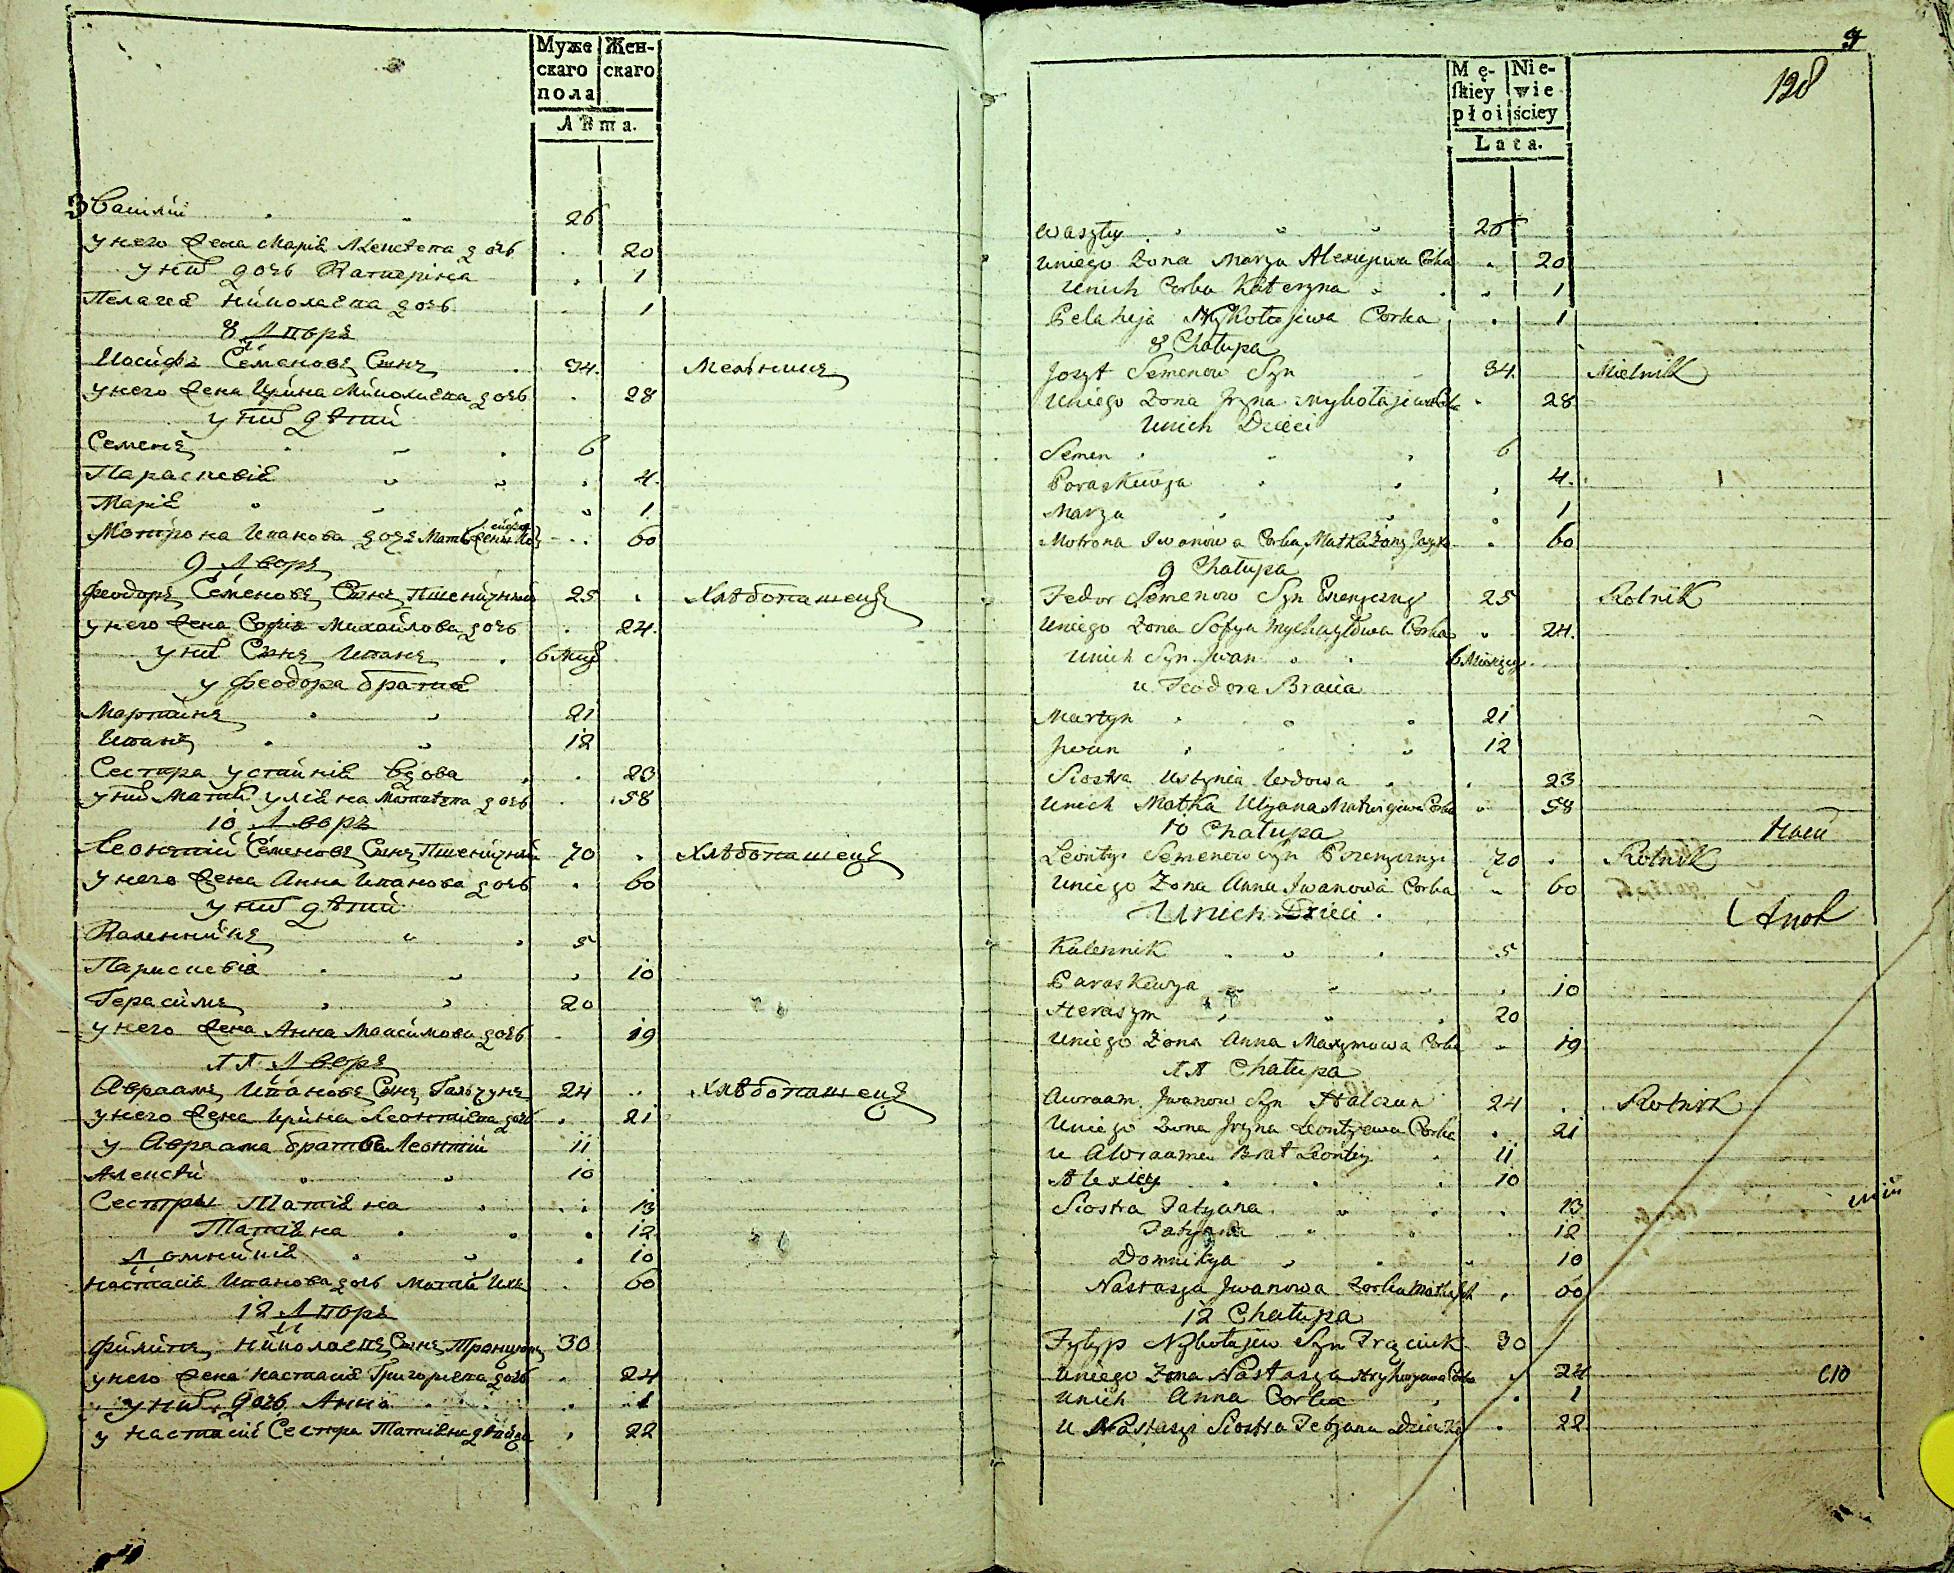 Муже Жен-
скаго скаго
пола
Лѣта.
3 Василій 26
у него жена Марія Алексѣева дочь 20
у нихъ дочь Катерина 1
Пелагея Николаева дочь 1
8 Дворъ
Иосифъ Семеновъ Сынъ 34. Мельникъ
у него жена Ирина Николаева дочь 28
у нихъ дѣтии
Семенъ 6
Парасковія 4.
Марія 1.
Мотрона Иванова дочь Мать жены 60
9 Дворъ
Феодоръ Семеновъ Сынъ Пшеничный 25 Хлѣбопашецъ
у него жена Софія Михайлова дочь 24.
у нихъ Сынъ Иванъ 6 Мцъ
у Феодора братия
Мартинъ 21
Иванъ 12
Сестра Устинія вдова 23
у нихъ Матий Улiяна Матвѣева дочь 58
10 Дворъ
Леонтий Семеновъ Сынъ Пшеничний 70 Хлѣбопашецъ
у него жена Анна Иванова дочь 60
у нихъ дѣтии
Каленникъ 5
Парасковія 10
Герасимъ 20
у него жена Анна Максимова дочь 19
11 Дворъ
Авраамъ Ивановъ Сынъ Гальчунъ 24 Хлѣбопашецъ
у него жена Ирина Леонтіева дочь 21
у Авраама братъ Леонтій 11
Алексѣй 10
Сестры Татіяна 13
Татіяна 12
Домникія 10
Настасія Иванова дочь Матий 60
12 Дворъ
Филипъ Николаевъ Сынъ 30
у него жена Настасія Григорьева дочь 24
у нихъ дочь Анна 1
у Настасіи Сестра Татіяна дѣвица 22
9
128
Mę- Nie-
skiey wie
płoi ściey
Lata.
Waszłiy 26
Uniego Żona Marya Alexiejwa Corka 20
Unich Corka Kateryna 1
Pelaheja Mykołajewa Corka 1
8 Chałupa
Jozyf Semenow Syn 34. Mielnik
Uniego Żona Jryna Mykołajewa Corka 28
Unich Dzieci
Semen 6
Poraskewya 4.
Marya 1
Motrona Jwanowa Corka Matka Żony 60
9 Chałupa
Fedor Semenow Syn Pszenyczny 25 Rolnik
Uniego Żona Sofya Mychayłowa Corka 24.
Unich Syn Jwan 6 Miesięcy
u Feodora Bracia
Martyn 21
Jwan 12
Siostra Ustynia Wdowa 23
Unich Matka Ulyana Matwijewa Corka 58
10 Chałupa
Leontyi Semenow Syn Pszenyczny 70 Rolnik
Uniego Żona Anna Jwanowa Corka 60
Unich Dzieci
Kalennik 5
Paraskewya 10
Herasym 20
Uniego Żona Anna Maxymowa Corka 19
11 Chałupa
Awraam Jwanow Syn Halczun 24 Rolnik
Uniego Żona Jryna Leontyewa Corka 21
u Awraama Brat Leontey 11
Alexiey 10
Siostra Tatyana 13
Tatyana 12
Domnikya 10
Nastasya Jwanowa Corka Matka 60
12 Chałupa
Fylyp Nykołajew Syn 30
Uniego Żona Nastasya Hryhoryewa Corka 24
Unich Anna Corka 1
U Nastasyi Siostra Tetyana Dziewka 22